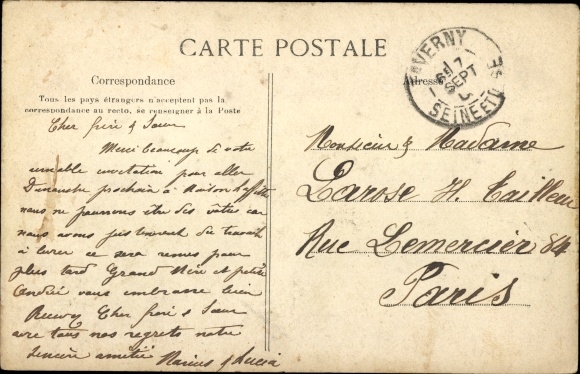 CARTE POSTALE
Correspondance
Tous les pays étrangers n'acceptent pas la
correspondance au recto, se renseigner à la Poste
Cher frère & Sœur
Merci beaucoup de votre
aimable invitation pour aller
Dimanche prochain à Maison Laffitte
nous ne pourrons être des vôtres car
nous avons justement du travail
à livrer ce sera remis pour
plus tard Grand Mère et petite
Andrée vous embrasse bien
Recevez Cher frère & Sœur
avec tous nos regrets notre
sincère amitié Marius & Lucia
Adresse
TAVERNY
7
SEPT
SEINE ET OISE
Monsieur & Madame
Larose H. Tailleur
Rue Lemercier 84
Paris